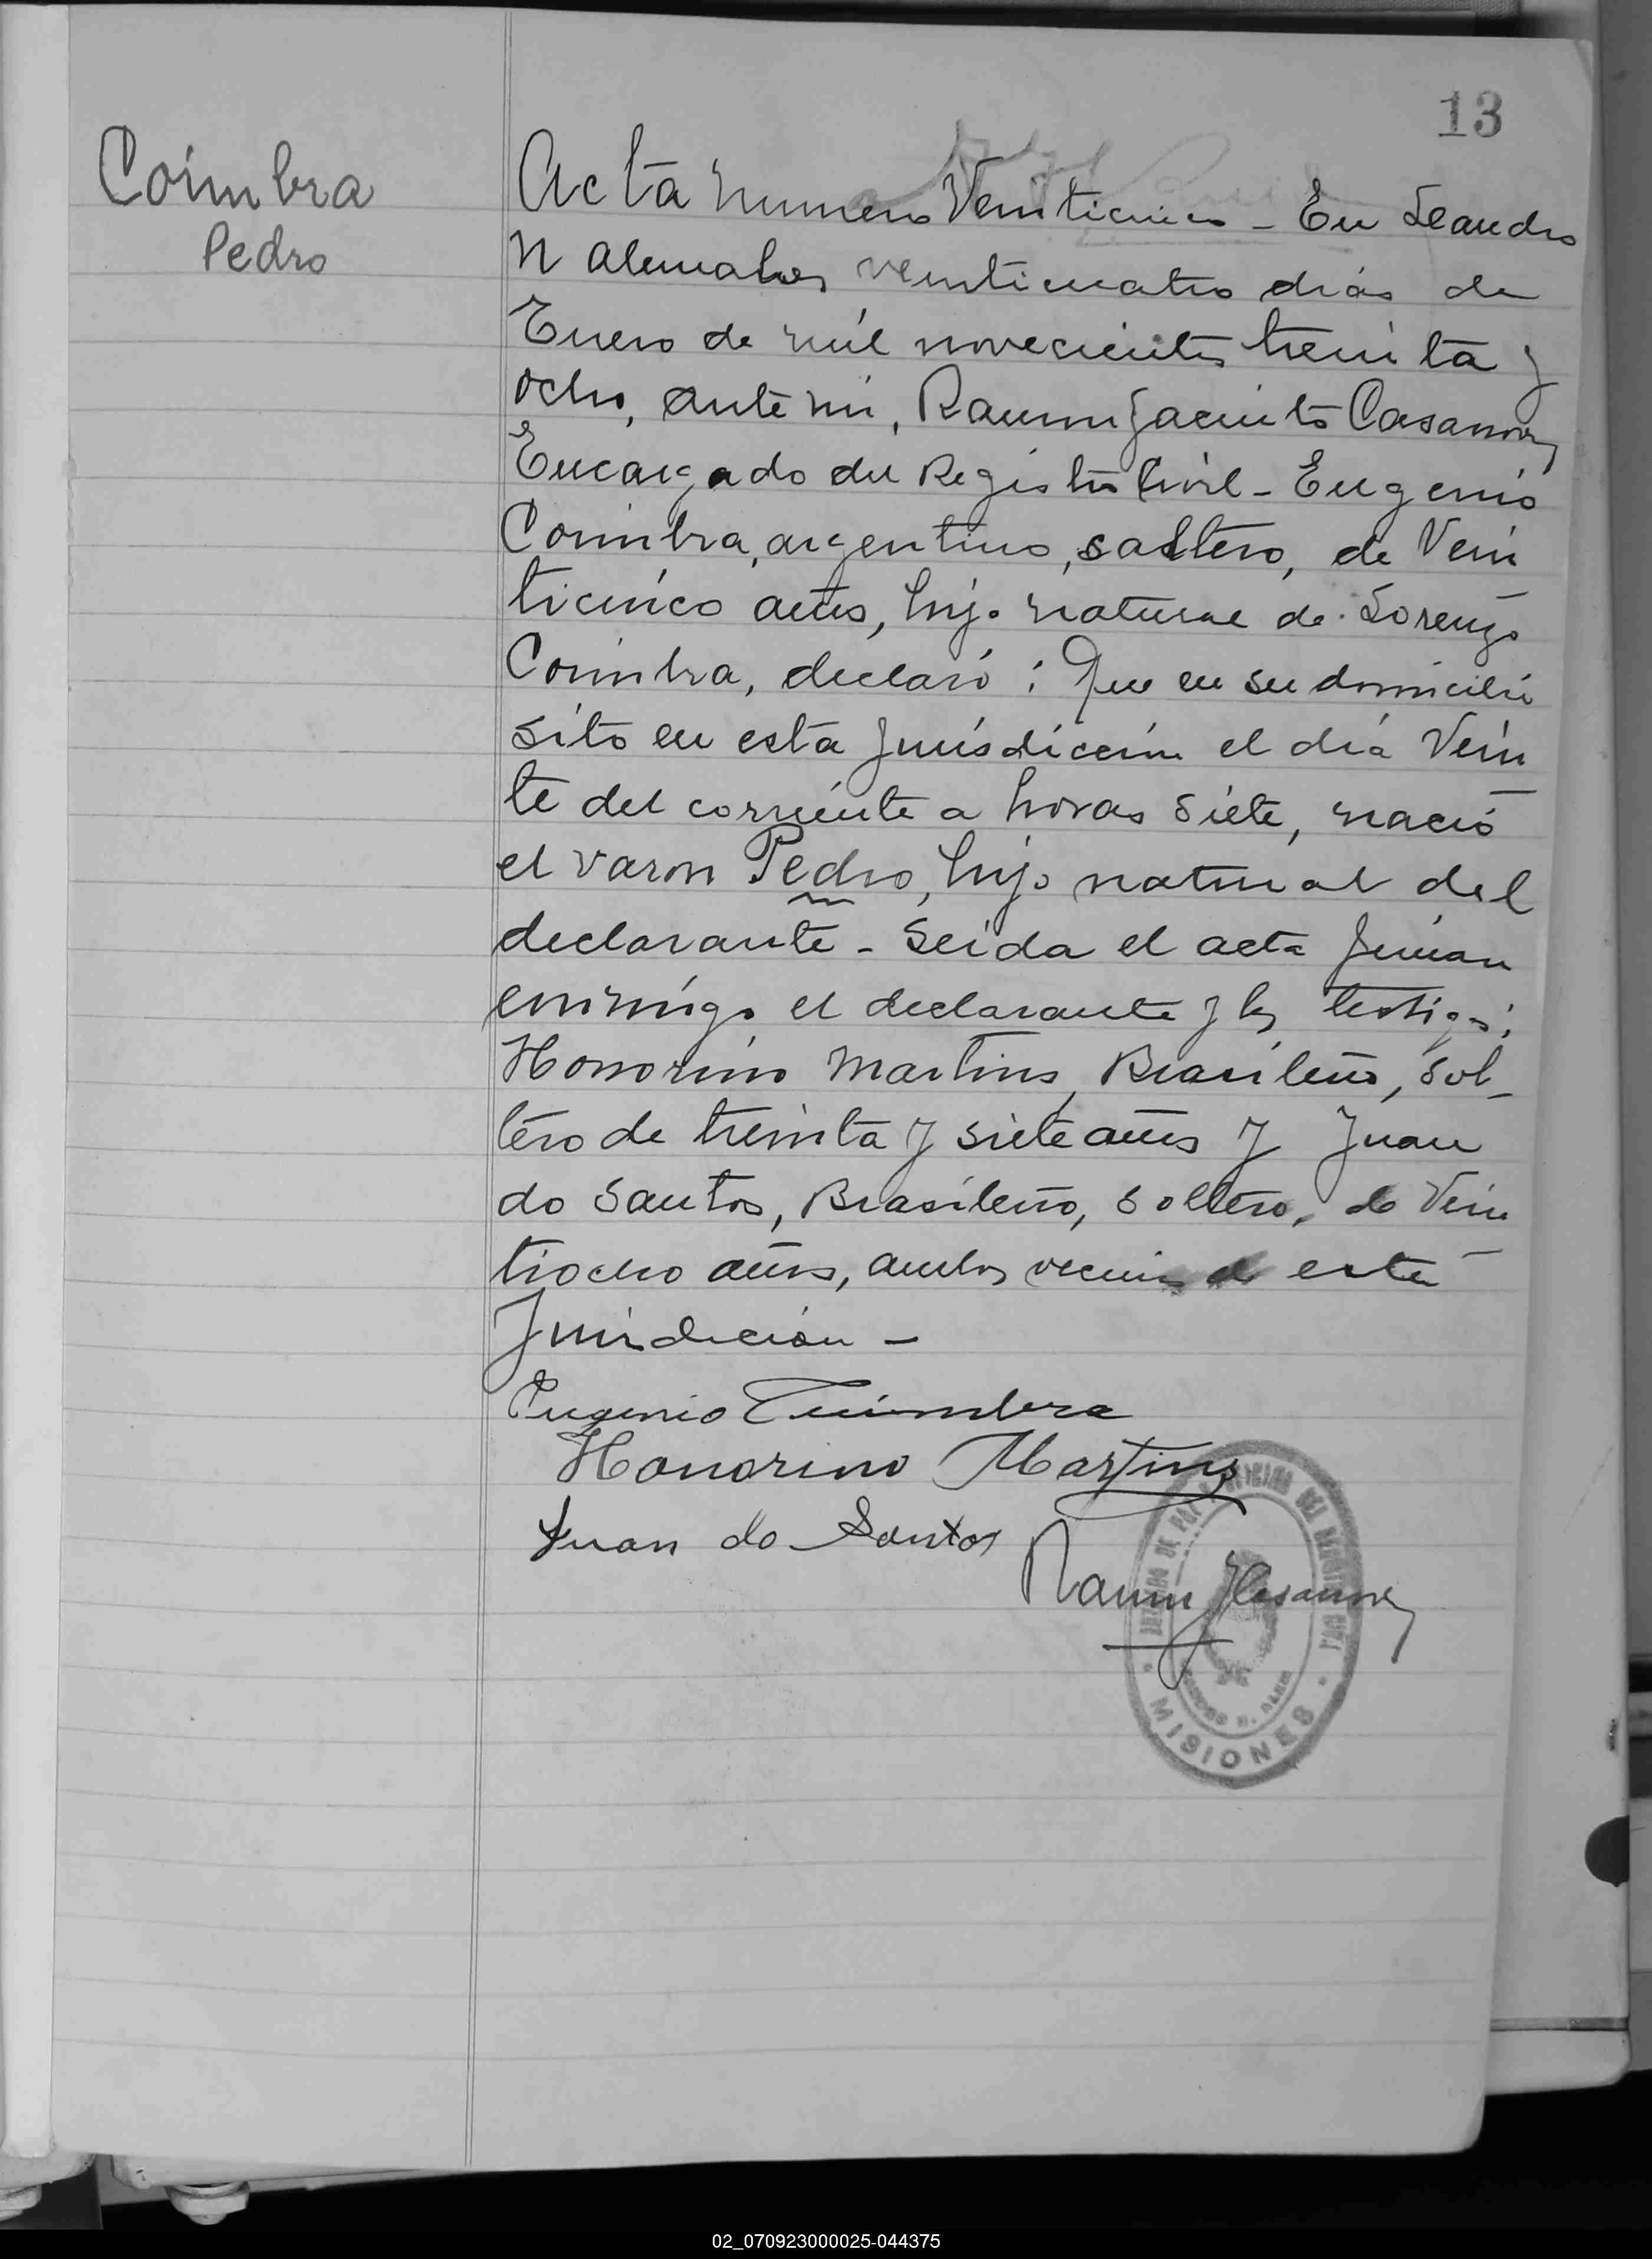 13
Coimbra
Pedro
Acta numero Veinticinco - En Leandro
N Alem a los veinticuatro dias de
Enero de mil novecientos treinta y
ocho, ante mi, Ramon Jacinto Casanova,
Encargado del Registro Civil - Eugenio
Coimbra, argentino, soltero, de Vein
ticinco años, hijo natural de Lorenzo
Coimbra, declaró: Que en su domicilio
sito en esta Jurisdiccion el dia Vein
te del corriente a horas siete, nació
el varon Pedro, hijo natural del
declarante - Leida el acta firman
conmigo el declarante y los testigos:
Honorino Martins, Brasileño, sol-
tero de treinta y siete años y Juan
do Santos, Brasileño, soltero, de Vein
tiocho años, ambos vecinos de esta
Jurisdicción -
Eugenio Cuimbra
Honorino Martins
Juan do Santos
Ramon J Casanova
JUZGADO DE PAZ Y OFICINA DEL REGISTRO CIVIL
LEANDRO N. ALEM
MISIONES
02_070923000025-044375